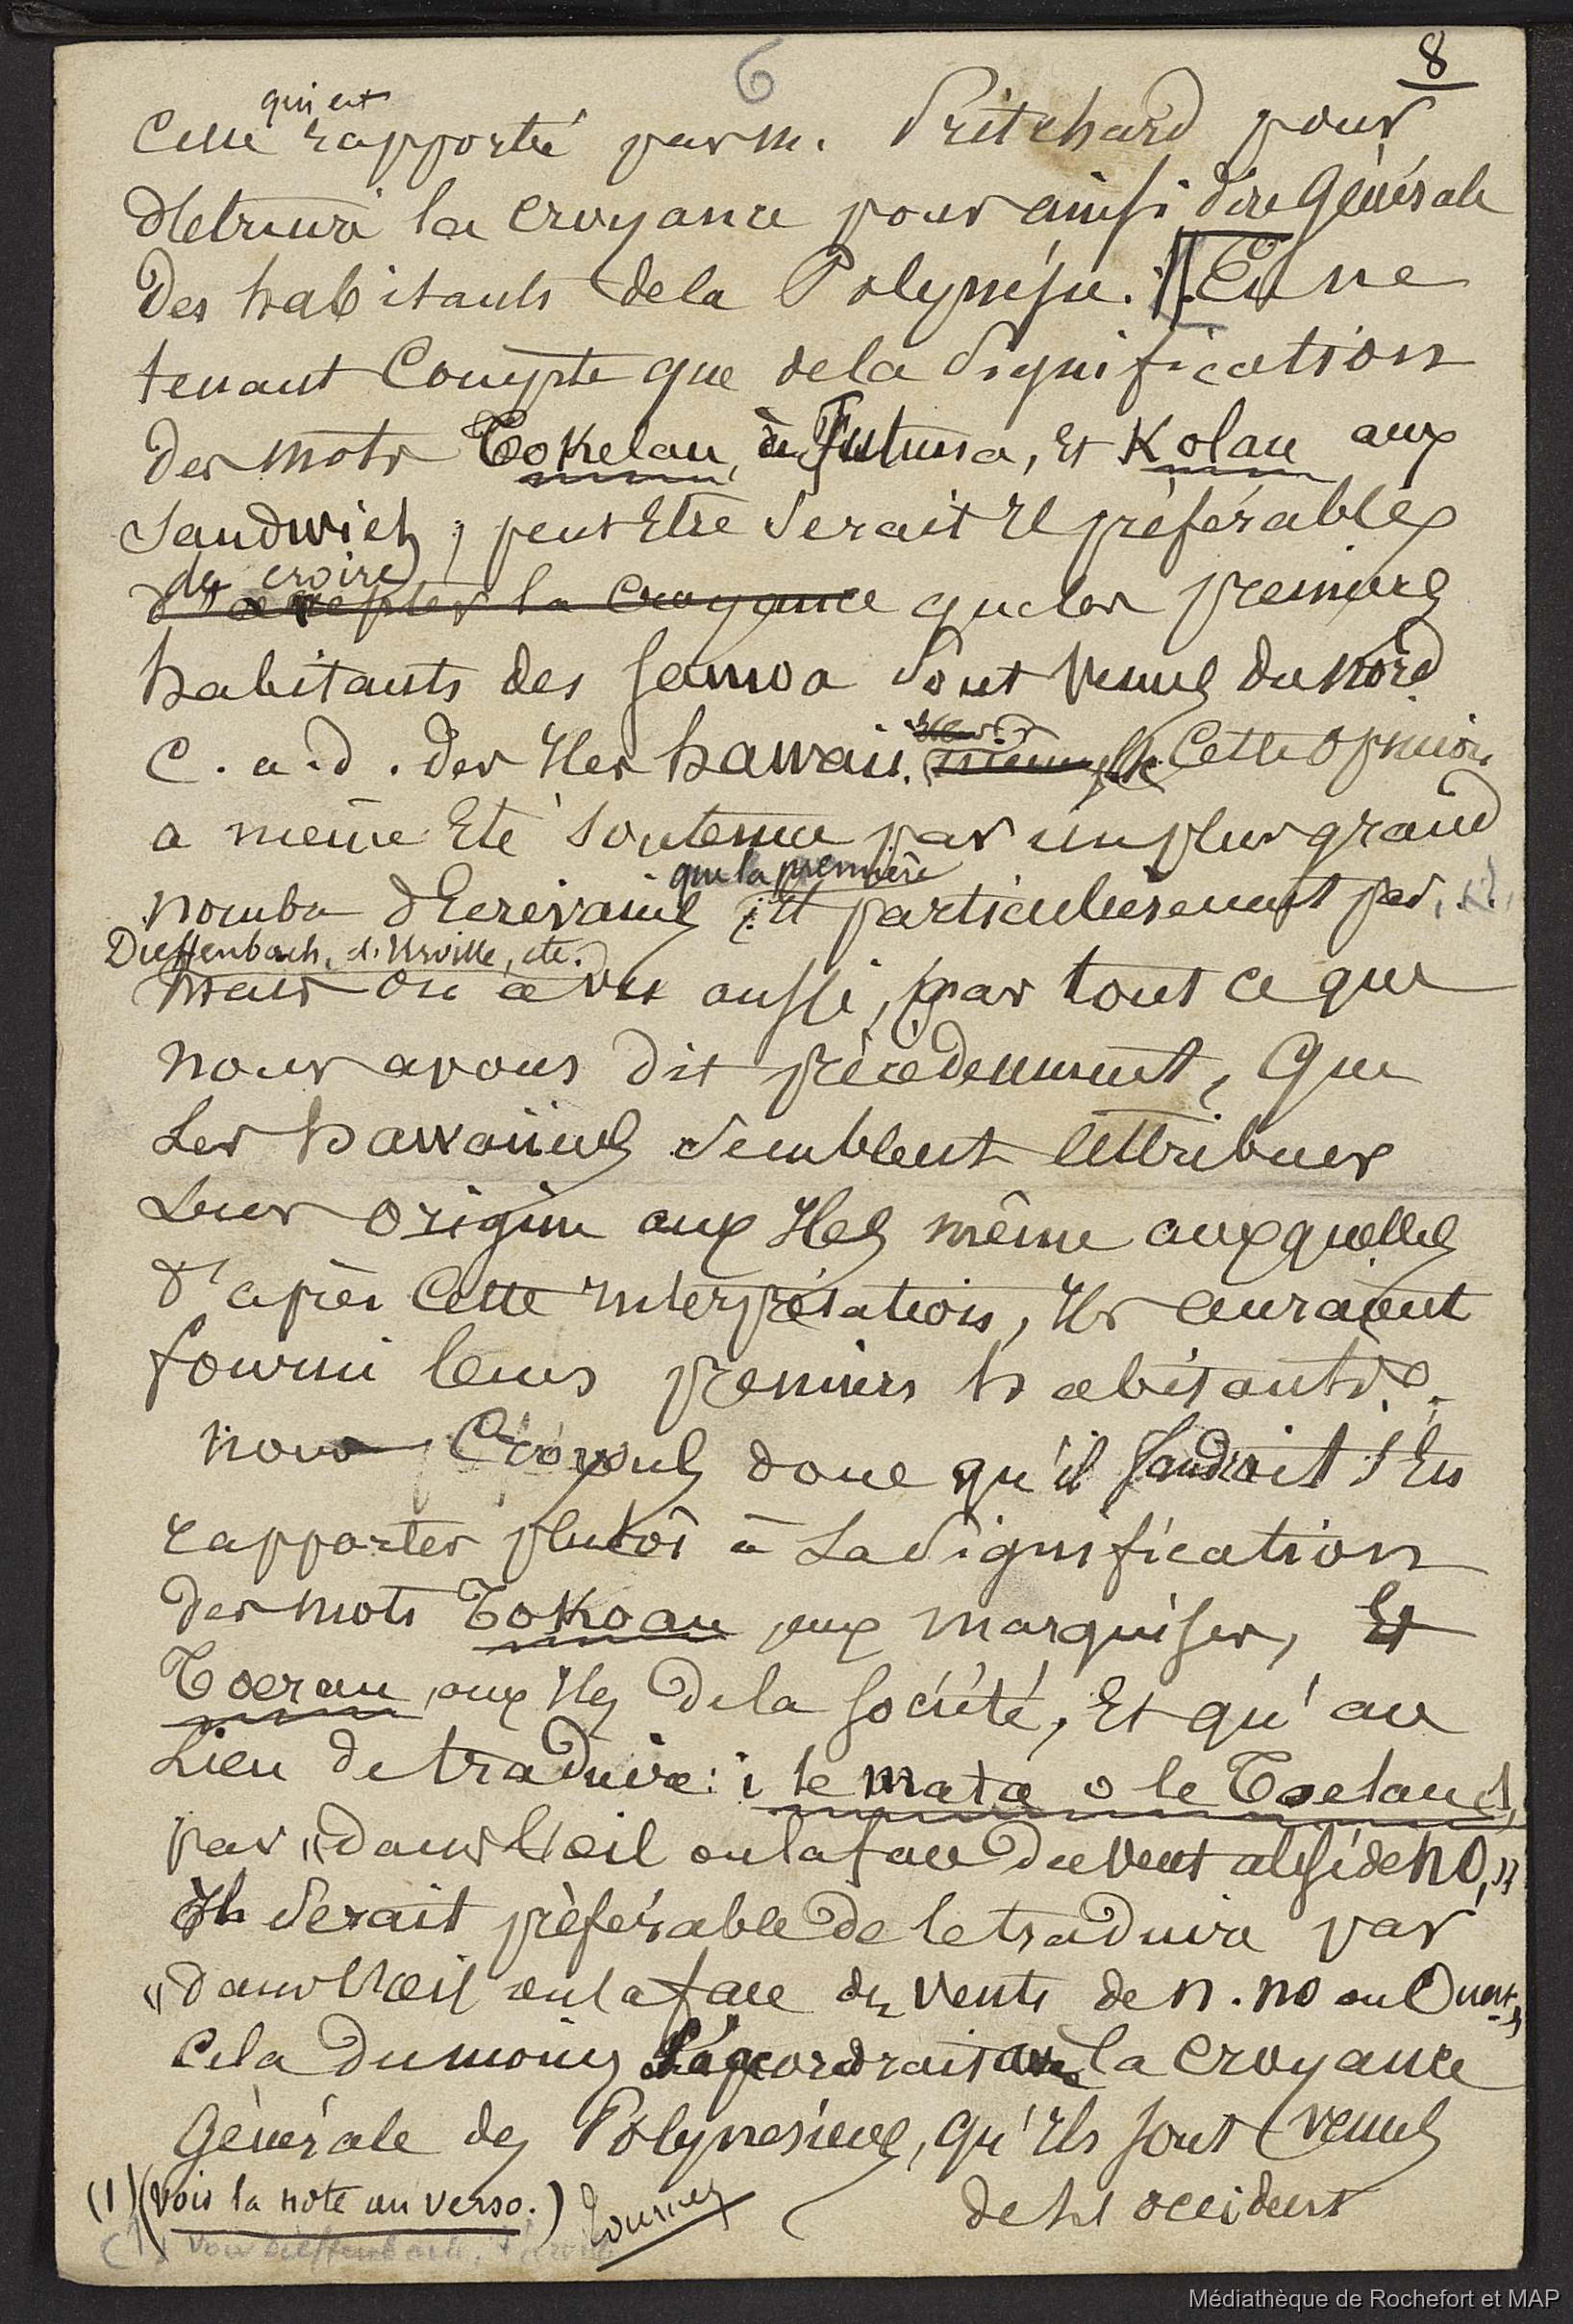 6
8
qui est
Celle rapportée par M. Pritchard pour
détruire la croyance pour ainsi dire Générale
des habitants de la Polynésie. En ne
tenant Compte que de la Signification
des mots Tokelau, à Futuna, Et Kolau aux
Sandwich, peut Etre Serait Il préférable
de croire
d'accepter la croyance que les premiers
habitants des Samoa Sont Venus du nord
C. a. d. des Iles hawaii. Cette opinion
a même Eté Soutenue par un plus grand
que la première
nombre d'Ecrivains, Et particulièrement par
Dieffenbach, d'Urville, etc.
Mais on a vu aussi, par tout ce que
nous avons dit précédemment, Que
Les hawaiiens Semblent attribuer
Leur origine aux Iles même auxquelles
d'après Cette Interprétation, Ils auraient
fourni leurs premiers habitants.
nous Croyons donc qu'il faudrait s'En
rapporter plutôt à La Signification
des mots Tokoau aux marquises, Et
Toerau, aux Iles de la Société, Et qu'au
Lieu de traduire: i le mata o le Toelau,
par "dans l'œil ou la face du vent alisé de NO,"
Il Serait préférable de le traduire par
"dans l'œil ou la face des vents de N. NO ou Ouest,"
Cela du moins S'accorderait avec la croyance
Générale des Polynesiens, qu'Ils sont venus
de l'occident
(1) (Voir la note au verso.)
Tournez
(1) Voir Dieffenbach,
Médiathèque de Rochefort et MAP